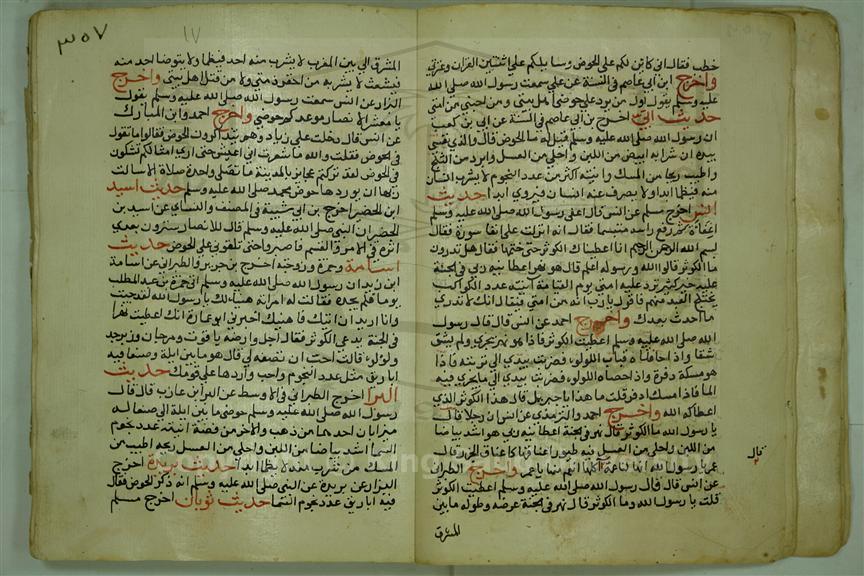 خطب فقال اني كاين لكم على الحوض وسايلكم على اثنتين القران وعترتي
واخرج ابن ابي عاصم في السنة عن علي سمعت رسول الله صلى الله
عليه وسلم يقول اول من يرد علي حوضي اهل بيتي ومن احبني من امتي
حديث ابي اخرج بن ابي عاصم في السنة عن ابي بن كعب
ان رسول الله صلى الله عليه وسلم قيل له ما الحوض قال والذي نفسي
بيده ان شرابه ابيض من اللبن واحلى من العسل وابرد من الثلج
واطيب ريحا من المسك وانيته اكثر من عدد النجوم لا يشرب انسان
منه فيظما ابدا ولا يصرف عنه انسان فيروى ابدا حديث
انس اخرج مسلم عن انس قال اغفى رسول الله صلى الله عليه وسلم
اغفاة ثم رفع راسه متبسما فقال انه انزلت علي انفا سورة فقال
بسم الله الرحمن الرحيم انا اعطيناك الكوثر حتى ختمها فقال هل تدرون
ما الكوثر قالوا الله ورسوله اعلم قال هو نهر اعطانيه ربي في الجنة
عليه خير كثير ترد عليه امتي يوم القيامة انيته عدد الكواكب
يختلج العبد منهم فاقول يا رب انه من امتي فيقال انك لا تدري
ما احدث بعدك واخرج احمد عن انس قال قال رسول
الله صلى الله عليه وسلم اعطيت الكوثر فاذا هو نهر يجري ولم يشق
شقا واذا حافتاه قباب اللولو فضربت بيدي الى تربته فاذا
هو مسكة ذفرة واذا حصاه اللولو فضربت بيدي الى ما يجري فيه
الما فاذا مسك اذفر قلت ما هذا يا جبريل قال هذا الكوثر الذي
اعطاكه الله واخرج احمد والترمذي عن انس ان رجلا قال
يا رسول الله ما الكوثر قال نهر في الجنة اعطانيه ربي هو اشد بياضا
من اللبن واحلى من العسل فيه طيور اعناقها كاعناق الجزر قال
عمر يا رسول الله انها لناعمة قال اكلها انعم منها يا عمر واخرج الطبراني
عن انس قال قال رسول الله صلى الله عليه وسلم اعطيت الكوثر
قلت يا رسول الله وما الكوثر قال نهر في الجنة عرضه وطوله ما بين
المشرق
قال
٣٥٧
١٧
المشرق الى بين المغرب لا يشرب منه احد فيظما ولا يتوضا احد منه
فيشعث لا يشربه من اخفر ذمتي ولا من قتل اهل بيتي واخرج
البزار عن انس سمعت رسول الله صلى الله عليه وسلم يقول
يا معشر الانصار موعدكم حوضي واخرج احمد وابن المبارك
عن انس قال دخلت على زياد وهم يتذاكرون الحوض فقالوا ما تقول
في الحوض فقلت والله ما شعرت اني اعيش حتى ارى امثالكم تشكون
في الحوض لقد تركتم عجايز بالمدينة ما تصلي واحدة صلاة الا سالت
ربها ان يوردها حوض محمد صلى الله عليه وسلم حديث اسيد
ابن الحضير اخرج بن ابي شيبة في المصنف والنساي عن اسيد بن
الحضير ان النبي صلى الله عليه وسلم قال للانصار سترون بعدي
اثرة في الامر والقسم فاصبروا حتى تلقوني على الحوض حديث
اسامة وحمزة وزوجته اخرج بن جرير والطبراني عن اسامة
ابن زيد ان رسول الله صلى الله عليه وسلم اتى حمزة بن عبد المطلب
يوما فلم يجده فقالت له امراته هنيا لك يا رسول الله لقد جيت
وانا اريد ان اتيك فاهنيك اخبرني ابو عمارة انك اعطيت نهرا
في الجنة يدعى الكوثر فقال اجل وارضه ياقوت ومرجان وزبرجد
ولولو قالت احب ان تصفه لي قال هو ما بين ايلة وصنعا فيه
اباريق مثل عدد النجوم واحب واردها علي قومك حديث
البرا اخرج الطبراني في الاوسط عن البرا بن عازب قال قال
رسول الله صلى الله عليه وسلم حوضي ما بين ايلة الى صنعا له
ميزابان احدهما من ذهب والاخر من فضة انيته عدد نجوم
السما اشد بياضا من اللبن واحلى من العسل ريحه اطيب من
المسك من شرب منه لا يظما ابدا حديث بريدة اخرج
البزار عن بريدة عن النبي صلى الله عليه وسلم انه ذكر الحوض فقال
فيه اباريق عدد نجوم السما حديث ثوبان اخرج مسلم